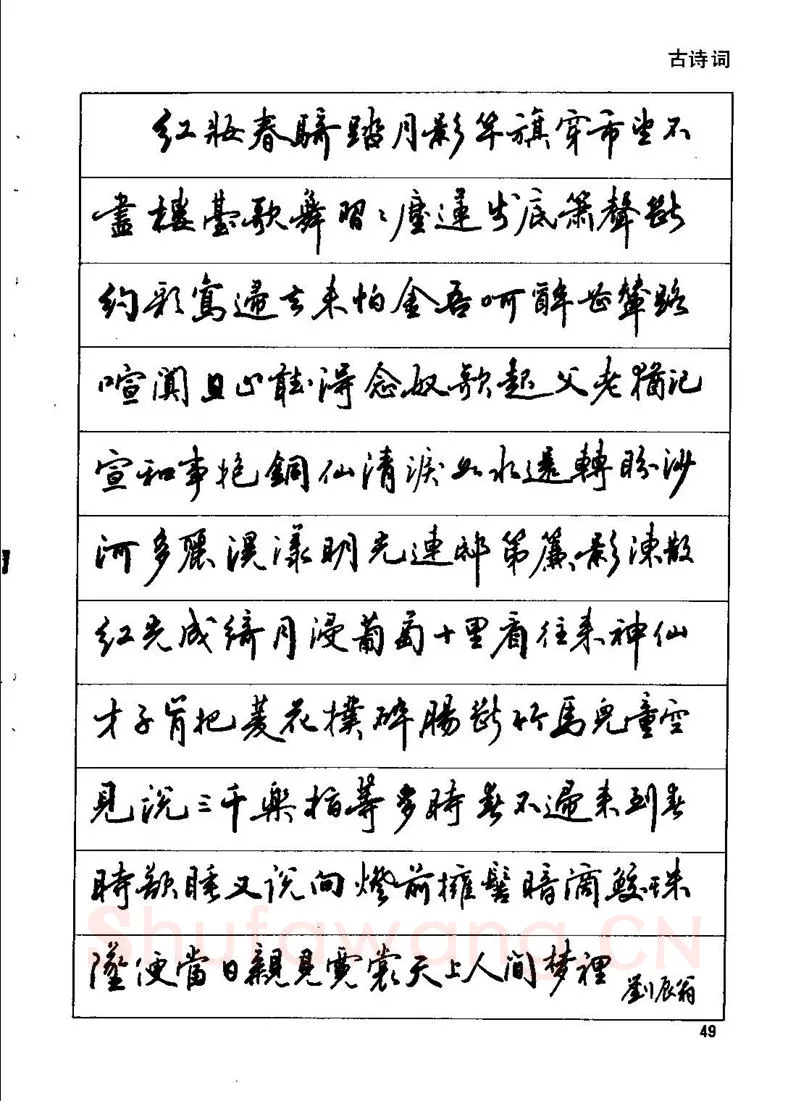 古诗词
红妝春騎踏月影竿旗穿市望不
盡樓臺歌舞習〻塵蓮步底簫聲斷
約彩鸞歸去未怕金吾呵醉甚輦路
喧闐且止聽得念奴歌起父老猶記
宣和事抱銅仙清淚如水還轉盼沙
河多麗滉漾明光連邸第簾影凍散
红光成綺月浸葡萄十里看往来神仙
才子肯把菱花撲碎腸斷竹馬兒童空
見说三千樂指等多時春不歸来到春
時欲睡又说向燈前擁髻暗滴鮫珠
墜便當日親見霓裳天上人間梦裡 劉辰翁
Shufawang.CN
49